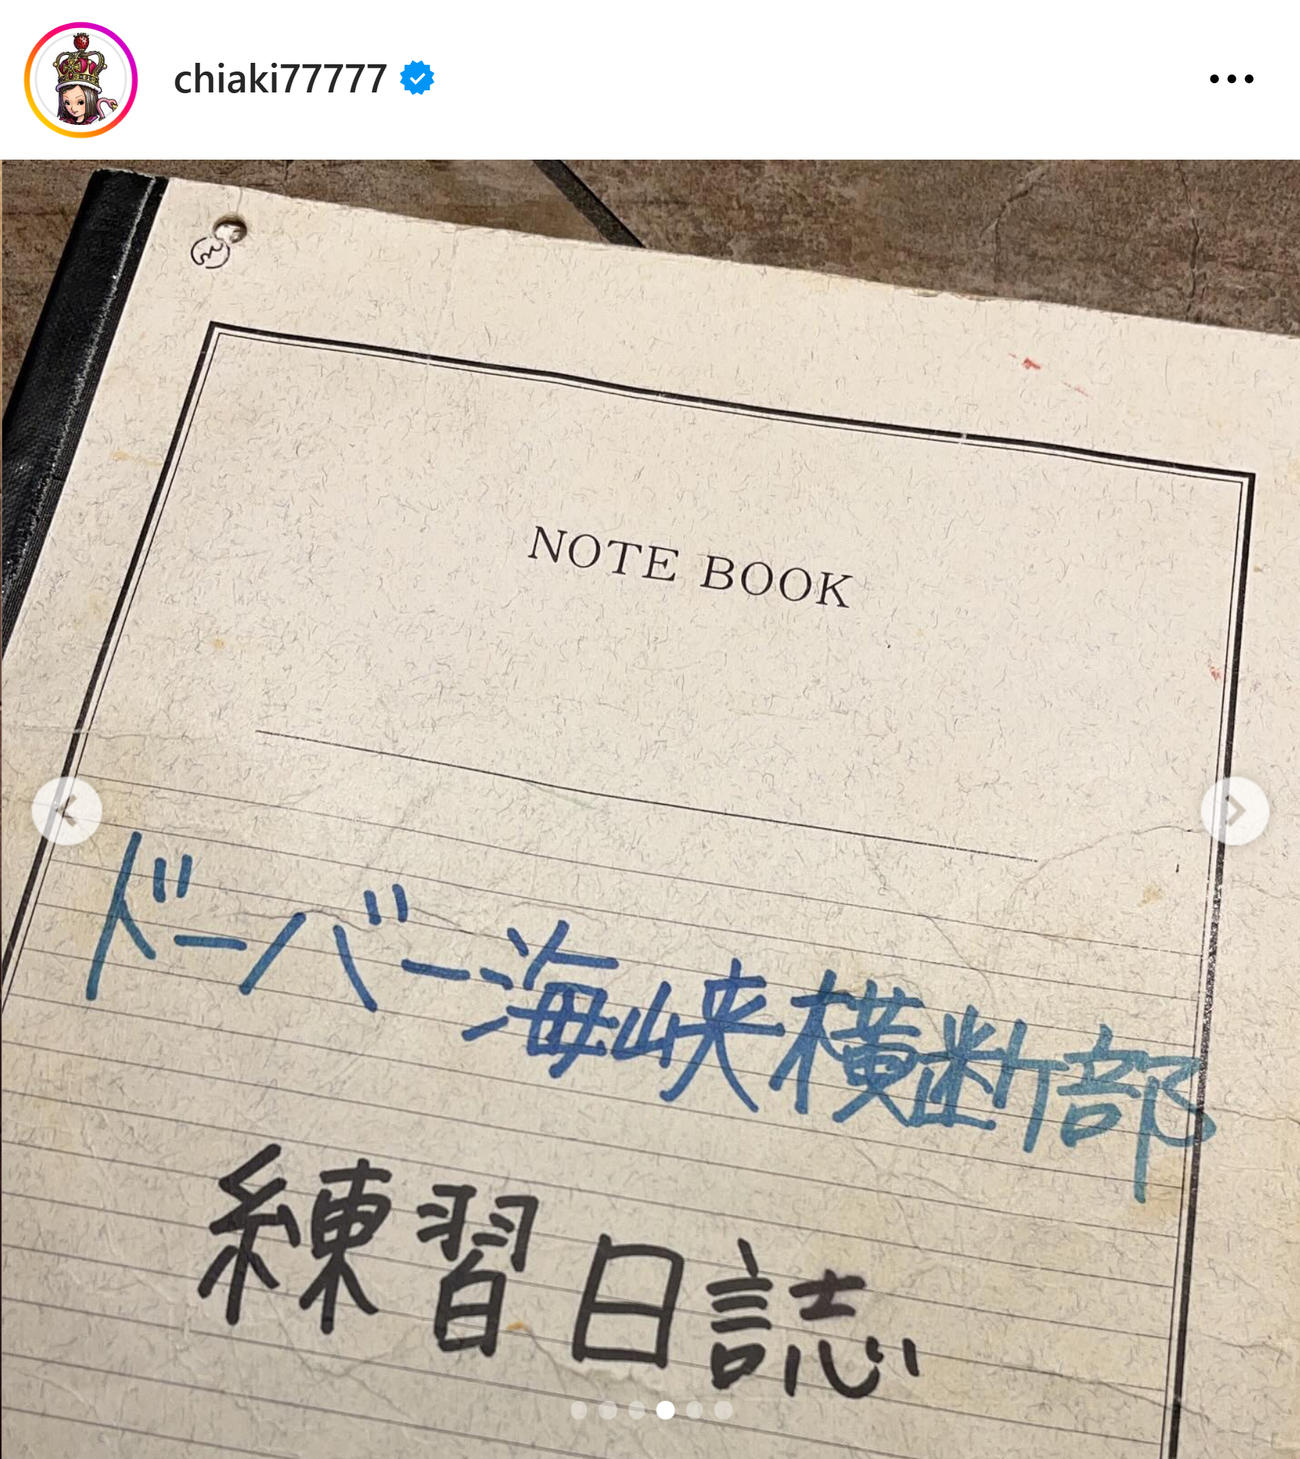 chiaki77777
NOTE BOOK
ドーバー海峡横断部
練習日誌